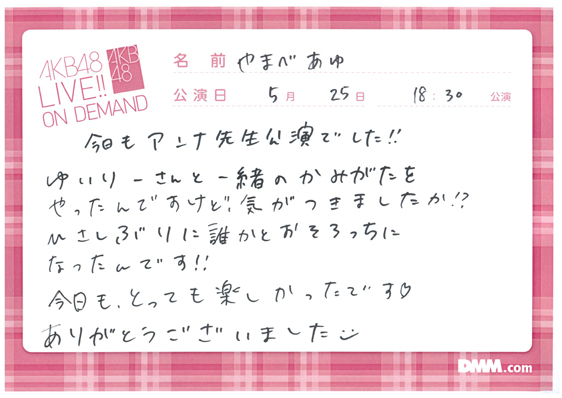 AKB48
LIVE!!
ON DEMAND
AKB
48
名前 やまべあゆ
公演日 5月 25日 18:30 公演
今日もアンナ先生公演でした!!
ゆいりーさんと一緒のかみがたを
やったんですけど、気がつきましたか!?
ひさしぶりに誰かとおそろっちに
なったんです!!
今日も、とっても楽しかったです♡
ありがとうございました
DMM.com